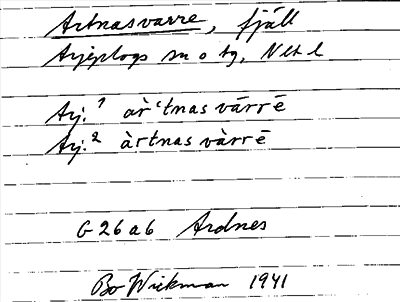 Artnasvarre, fjäll
Arjeplogs sn o tg, Nlt l
Arj.¹ ar̀ʻtnas vārrē
Arj.² àrtnas vàrrē
G 26 a 6 Ardnes
Bo Wickman 1941